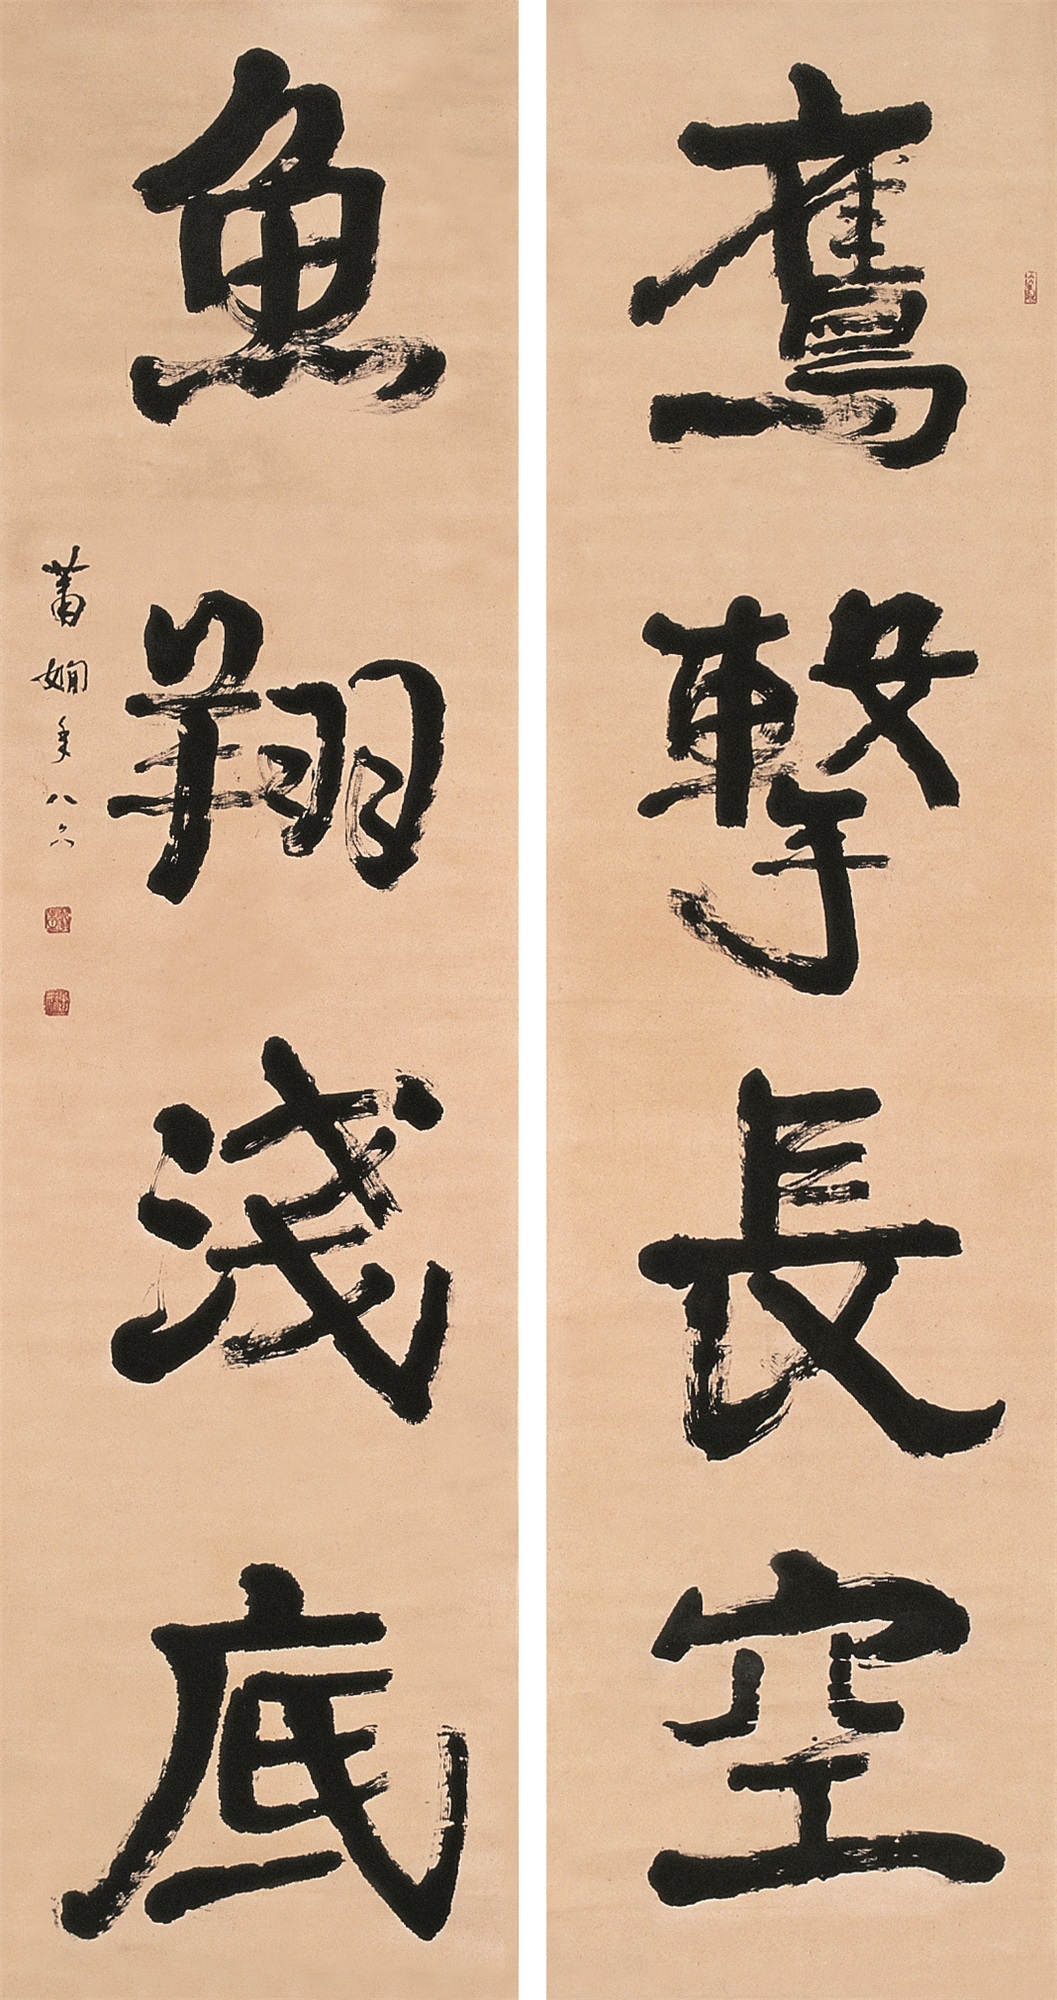 鷹擊長空
魚翔淺底
蕭嫻年八六